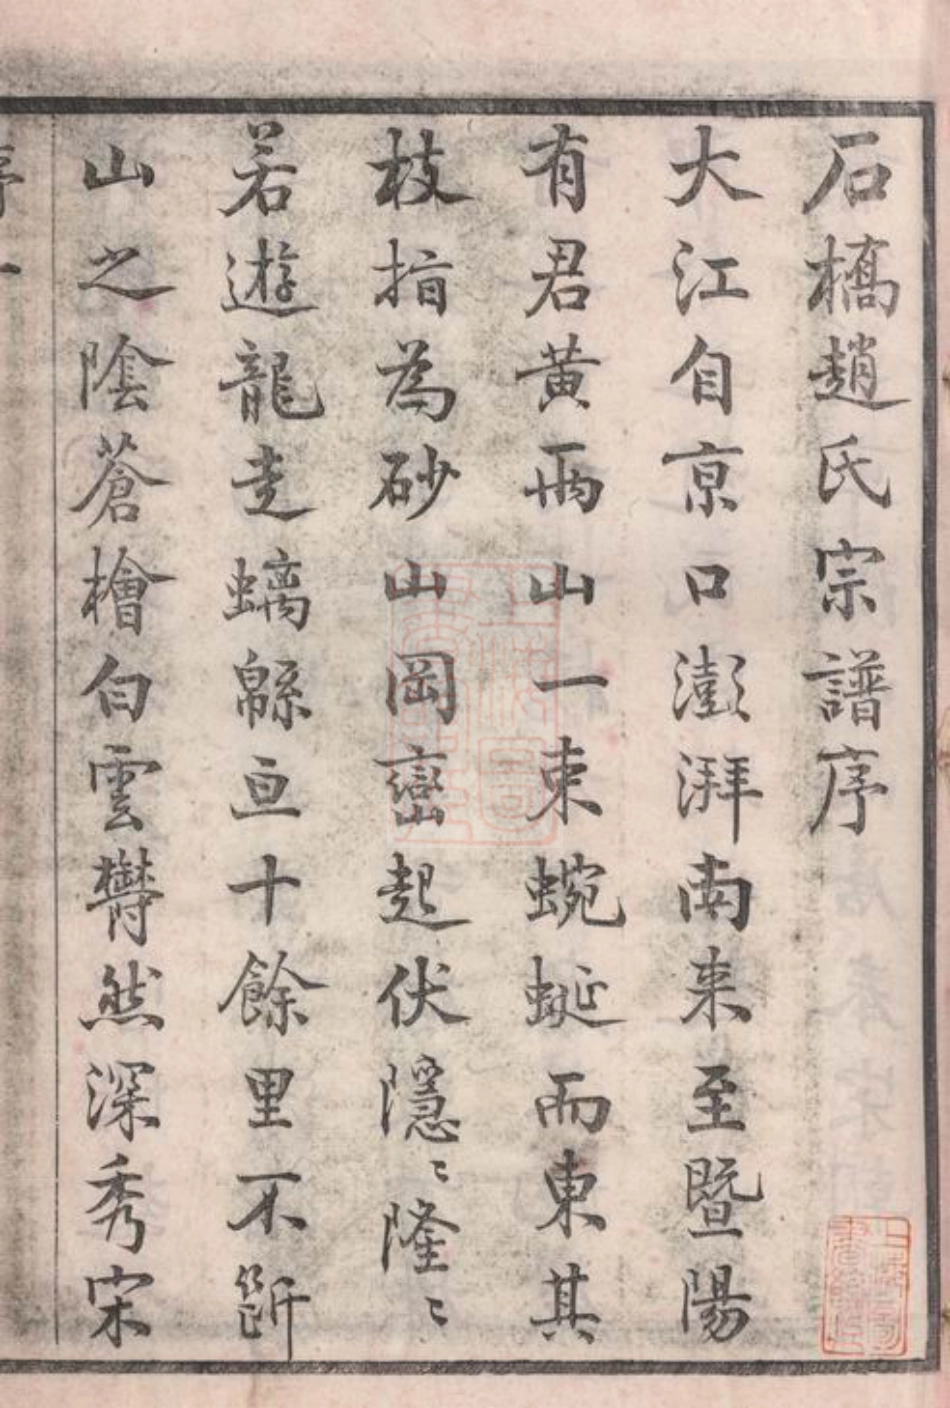 石橋趙氏宗譜序
大江自京口澎湃南来至暨陽
有君黄兩山一束蜿蜒而東其
枝指為砂山岡巒起伏隱〻隆〻
若遊龍走螭緜亘十餘里不斷
山之陰蒼檜白雲欎然深秀宋